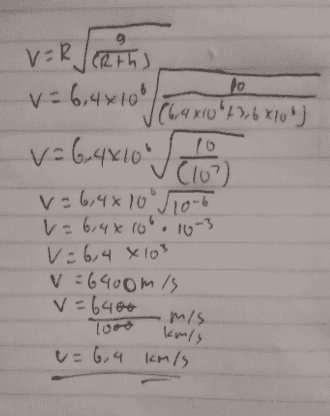 V = R √(g/(R+h))
V = 6,4 x 10⁶ √(10/(6,4 x 10⁶ + 3,6 x 10⁶))
V = 6,4 x 10⁶ √(10/(10⁷))
V = 6,4 x 10⁶ √10⁻⁶
V = 6,4 x 10⁶ . 10⁻³
V = 6,4 x 10³
V = 6400 m/s
V = 6400/1000 m/s km/s
V = 6,4 km/s